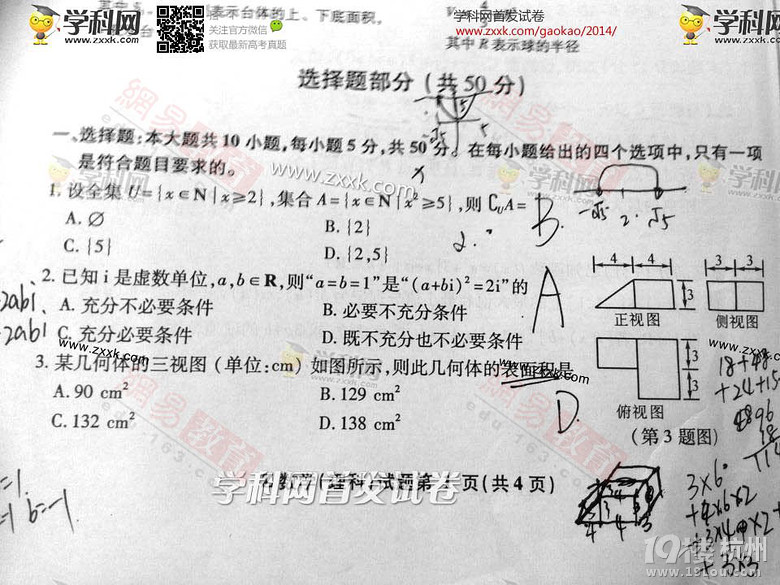 学科网 www.zxxk.com
关注官方微信
获取最新高考真题
学科网首发试卷
www.zxxk.com/gaokao/2014/
学科网 www.zxxk.com
表示台体的上、下底面积,
其中 R 表示球的半径
选择题部分(共50分)
一、选择题:本大题共10小题,每小题5分,共50分。在每小题给出的四个选项中,只有一项
是符合题目要求的。
1. 设全集 U={x∈N|x≥2},集合 A={x∈N|x²≥5},则 ∁UA=
B.
-√5 2 √5
A. ∅ B. {2}
C. {5} D. {2,5}
2. 已知 i 是虚数单位,a,b∈R,则“a=b=1”是“(a+bi)²=2i”的
A
A. 充分不必要条件 B. 必要不充分条件
C. 充分必要条件 D. 既不充分也不必要条件
2abi
2abi
4 4 3 3
3
正视图 侧视图
3
3
俯视图
(第3题图)
3. 某几何体的三视图(单位:cm)如图所示,则此几何体的表面积是
D.
A. 90 cm² B. 129 cm²
C. 132 cm² D. 138 cm²
18+48
+24+15
3×6
+4×6×2
+3×4 ×2+
+3×3
b=-1
学科网首发试卷
数学(理科)试题第 页(共4页)
網易教育
edu.163.com
19楼 杭州
www.19lou.com